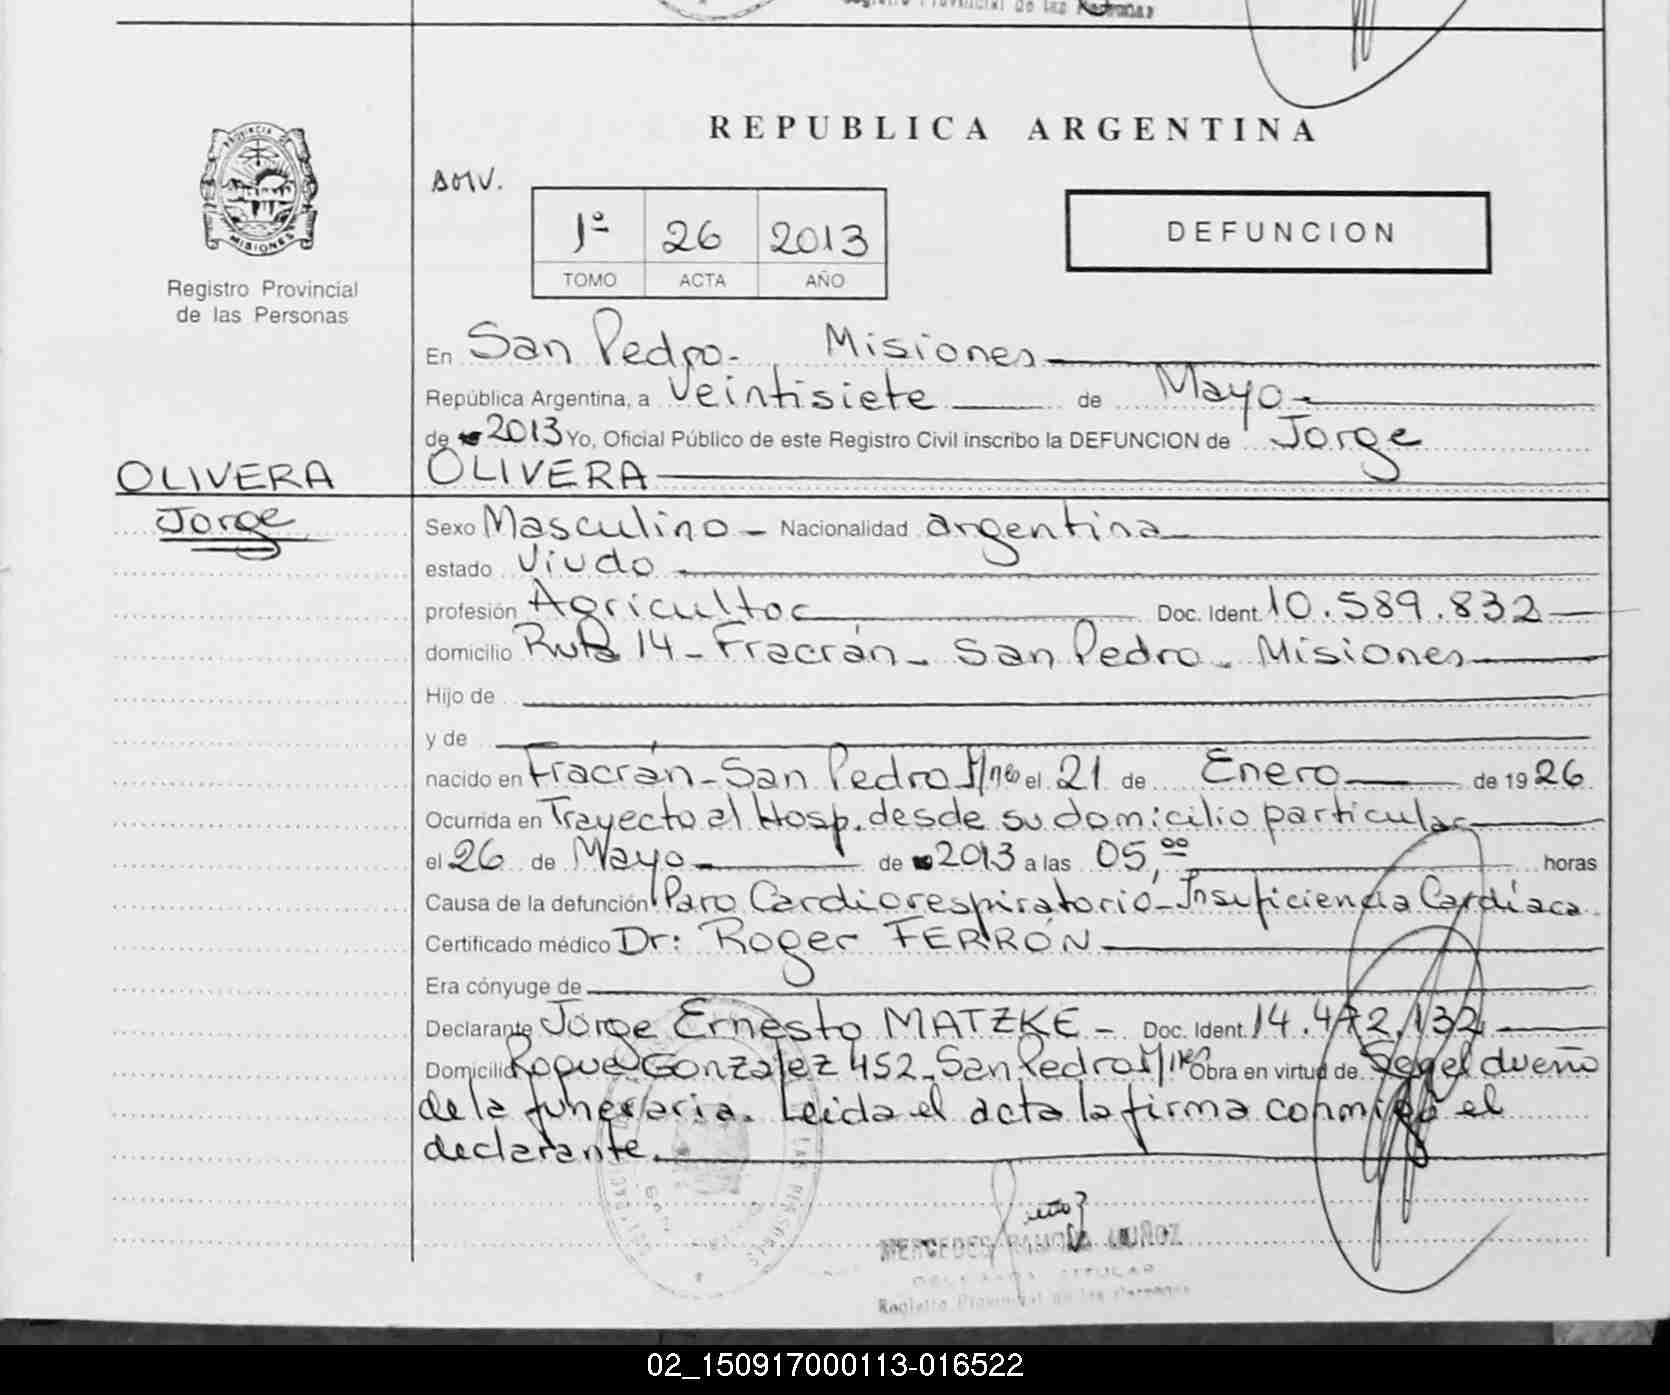 Registro Provincial de las Personas
REPUBLICA ARGENTINA
PROVINCIA
MISIONES
Registro Provincial
de las Personas
1º 26 2013
TOMO ACTA AÑO
DEFUNCION
En San Pedro - Misiones
República Argentina, a veintisiete de Mayo
de 2013 Yo, Oficial Público de este Registro Civil inscribo la DEFUNCION de Jorge
OLIVERA
OLIVERA
Jorge
Sexo Masculino - Nacionalidad argentina
estado Viudo
profesión Agricultor Doc. Ident. 10.589.832
domicilio Ruta 14 - Fracrán - San Pedro - Misiones
Hijo de
y de
nacido en Fracrán - San Pedro Mnes el 21 de Enero de 1926
Ocurrida en Trayecto al Hosp. desde su domicilio particular
el 26 de Mayo de 2013 a las 05,00 horas
Causa de la defunción Paro Cardiorespiratorio - Insuficiencia Cardíaca
Certificado médico Dr: Roger FERRÓN
Era cónyuge de
Declarante Jorge Ernesto MATZKE - Doc. Ident. 14.472.132
Domicilio Roque Gonzalez 452 - San Pedro Mnes Obra en virtud de Ser el dueño
de la funeraria. Leida el acta la firma conmigo el
declarante.
MERCEDES RAMONA MUÑOZ
DELEGADA TITULAR
Registro Provincial de las Personas
02_150917000113-016522